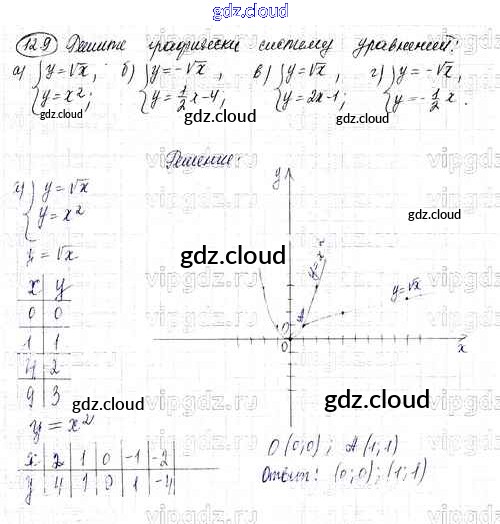 gdz.cloud
12.9 Решите графически систему уравнений:
а) { y = √x, y = x²; б) { y = -√x, y = 1/2 x - 4; в) { y = √x, y = 2x - 1; г) { y = -√x, y = -1/2 x.
gdz.cloud gdz.cloud gdz.cloud
Решение:
а) { y = √x
y = x²
y = √x
x y
0 0
1 1
4 2
9 3
y = x²
x 2 1 0 -1 -2
y 4 1 0 1 -4
y
y = x²
y = √x
A
O
0
x
gdz.cloud
gdz.cloud
gdz.cloud
gdz.cloud
O (0;0); A (1;1)
Ответ: (0;0); (1;1)
gdz.cloud
vipgdz.ru